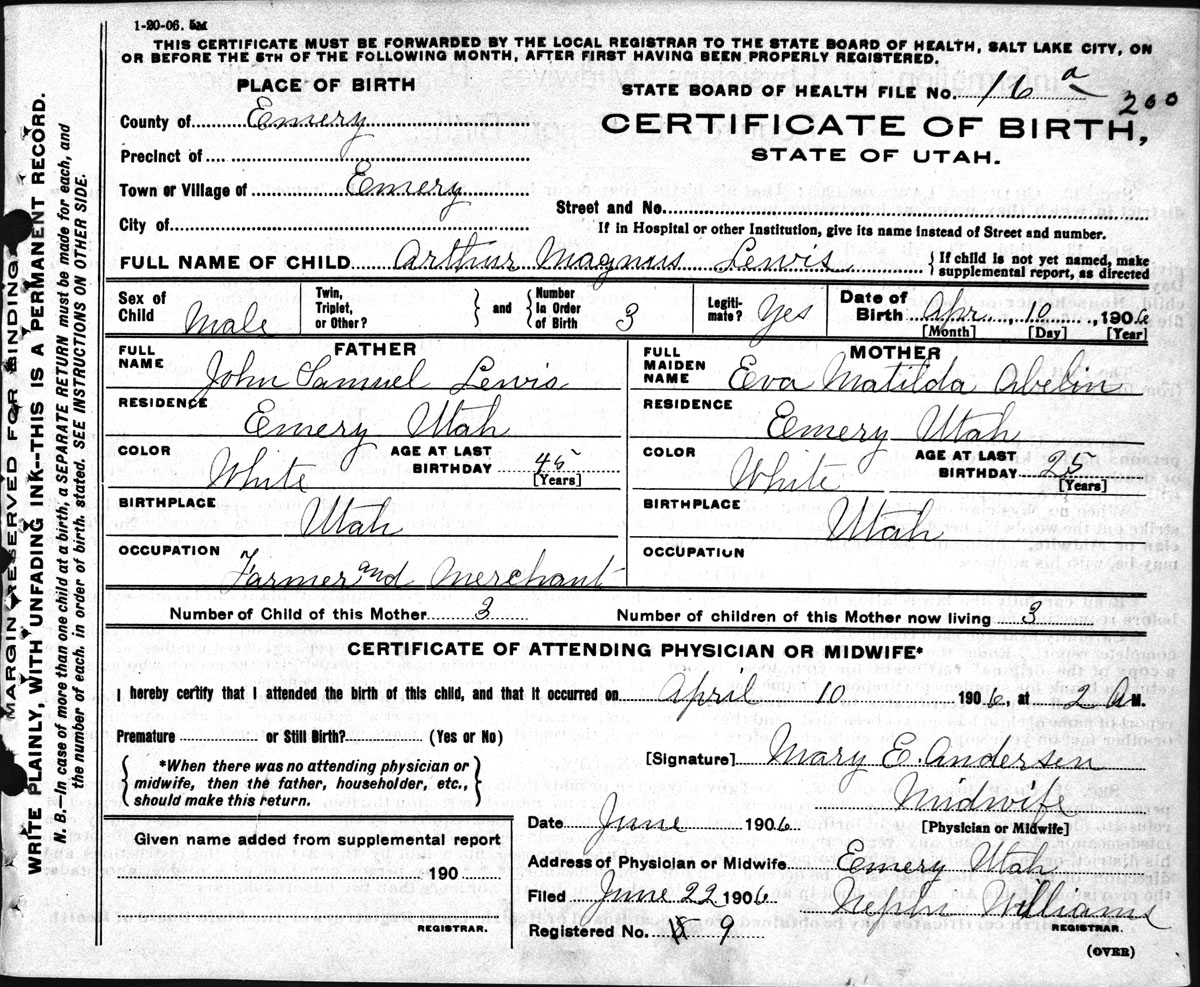 1-20-06. 5M
THIS CERTIFICATE MUST BE FORWARDED BY THE LOCAL REGISTRAR TO THE STATE BOARD OF HEALTH, SALT LAKE CITY, ON
OR BEFORE THE 5TH OF THE FOLLOWING MONTH, AFTER FIRST HAVING BEEN PROPERLY REGISTERED.
MARGIN RESERVED FOR BINDING
WRITE PLAINLY, WITH UNFADING INK--THIS IS A PERMANENT RECORD.
N. B.--In case of more than one child at a birth, a SEPARATE RETURN must be made for each, and
the number of each, in order of birth, stated. SEE INSTRUCTIONS ON OTHER SIDE.
PLACE OF BIRTH
STATE BOARD OF HEALTH FILE NO. 16 a
200
County of Emery
CERTIFICATE OF BIRTH,
Precinct of
STATE OF UTAH.
Town or Village of Emery
Street and No.
City of
If in Hospital or other Institution, give its name instead of Street and number.
FULL NAME OF CHILD Arthur Magnus Lewis
{ If child is not yet named, make
supplemental report, as directed
Sex of Child Male
Twin, Triplet, or Other? } and { Number In Order of Birth 3
Legiti-mate? Yes
Date of Birth Apr. 10, 1906
[Month] [Day] [Year]
FATHER
FULL NAME John Samuel Lewis
RESIDENCE Emery Utah
COLOR White AGE AT LAST BIRTHDAY 45 [Years]
BIRTHPLACE Utah
OCCUPATION Farmer and Merchant
MOTHER
FULL MAIDEN NAME Eva Matilda Abelin
RESIDENCE Emery Utah
COLOR White AGE AT LAST BIRTHDAY 25 [Years]
BIRTHPLACE Utah
OCCUPATION
Number of Child of this Mother 3 Number of children of this Mother now living 3
CERTIFICATE OF ATTENDING PHYSICIAN OR MIDWIFE*
I hereby certify that I attended the birth of this child, and that it occurred on April 10 1906, at 2 A M.
Premature or Still Birth? (Yes or No)
{ *When there was no attending physician or
midwife, then the father, householder, etc.,
should make this return. }
[Signature] Mary E. Andersen
Midwife
[Physician or Midwife]
Date June 1906
Given name added from supplemental report
190
REGISTRAR.
Address of Physician or Midwife. Emery Utah
Filed June 22 1906 Nephi Williams
REGISTRAR.
Registered No. 9
(OVER)